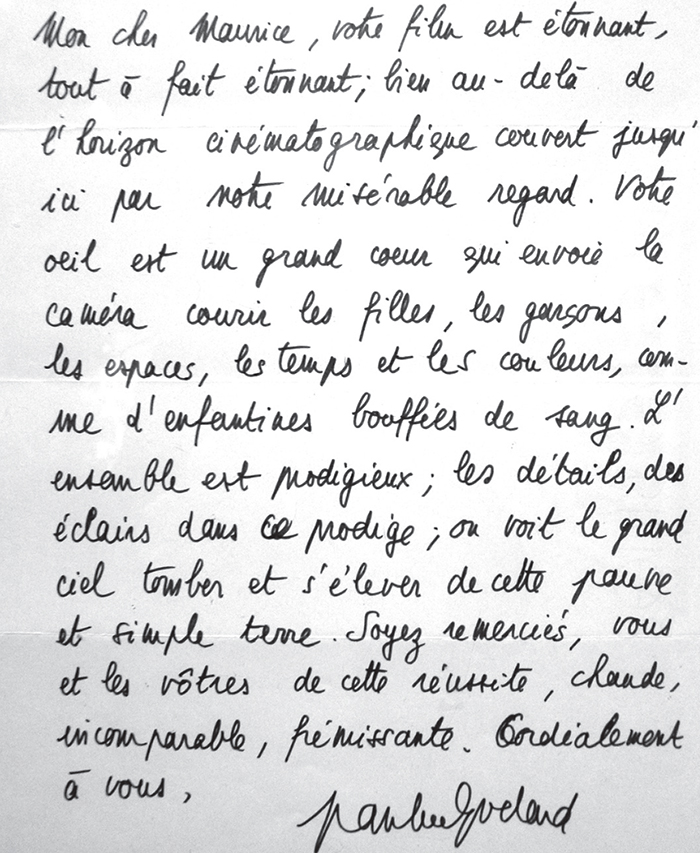 Mon cher Maurice, votre film est étonnant,
tout à fait étonnant ; bien au-delà de
l'horizon cinématographique couvert jusqu'
ici par notre misérable regard. Votre
oeil est un grand coeur qui envoie la
caméra courir les filles, les garçons,
les espaces, les temps et les couleurs, com-
me d'enfantines bouffées de sang. L'
ensemble est prodigieux ; les détails, des
éclairs dans ce prodige ; on voit le grand
ciel tomber et s'élever de cette pauvre
et simple terre. Soyez remerciés, vous
et les vôtres de cette réussite, chaude,
incomparable, frémissante. Cordialement
à vous,